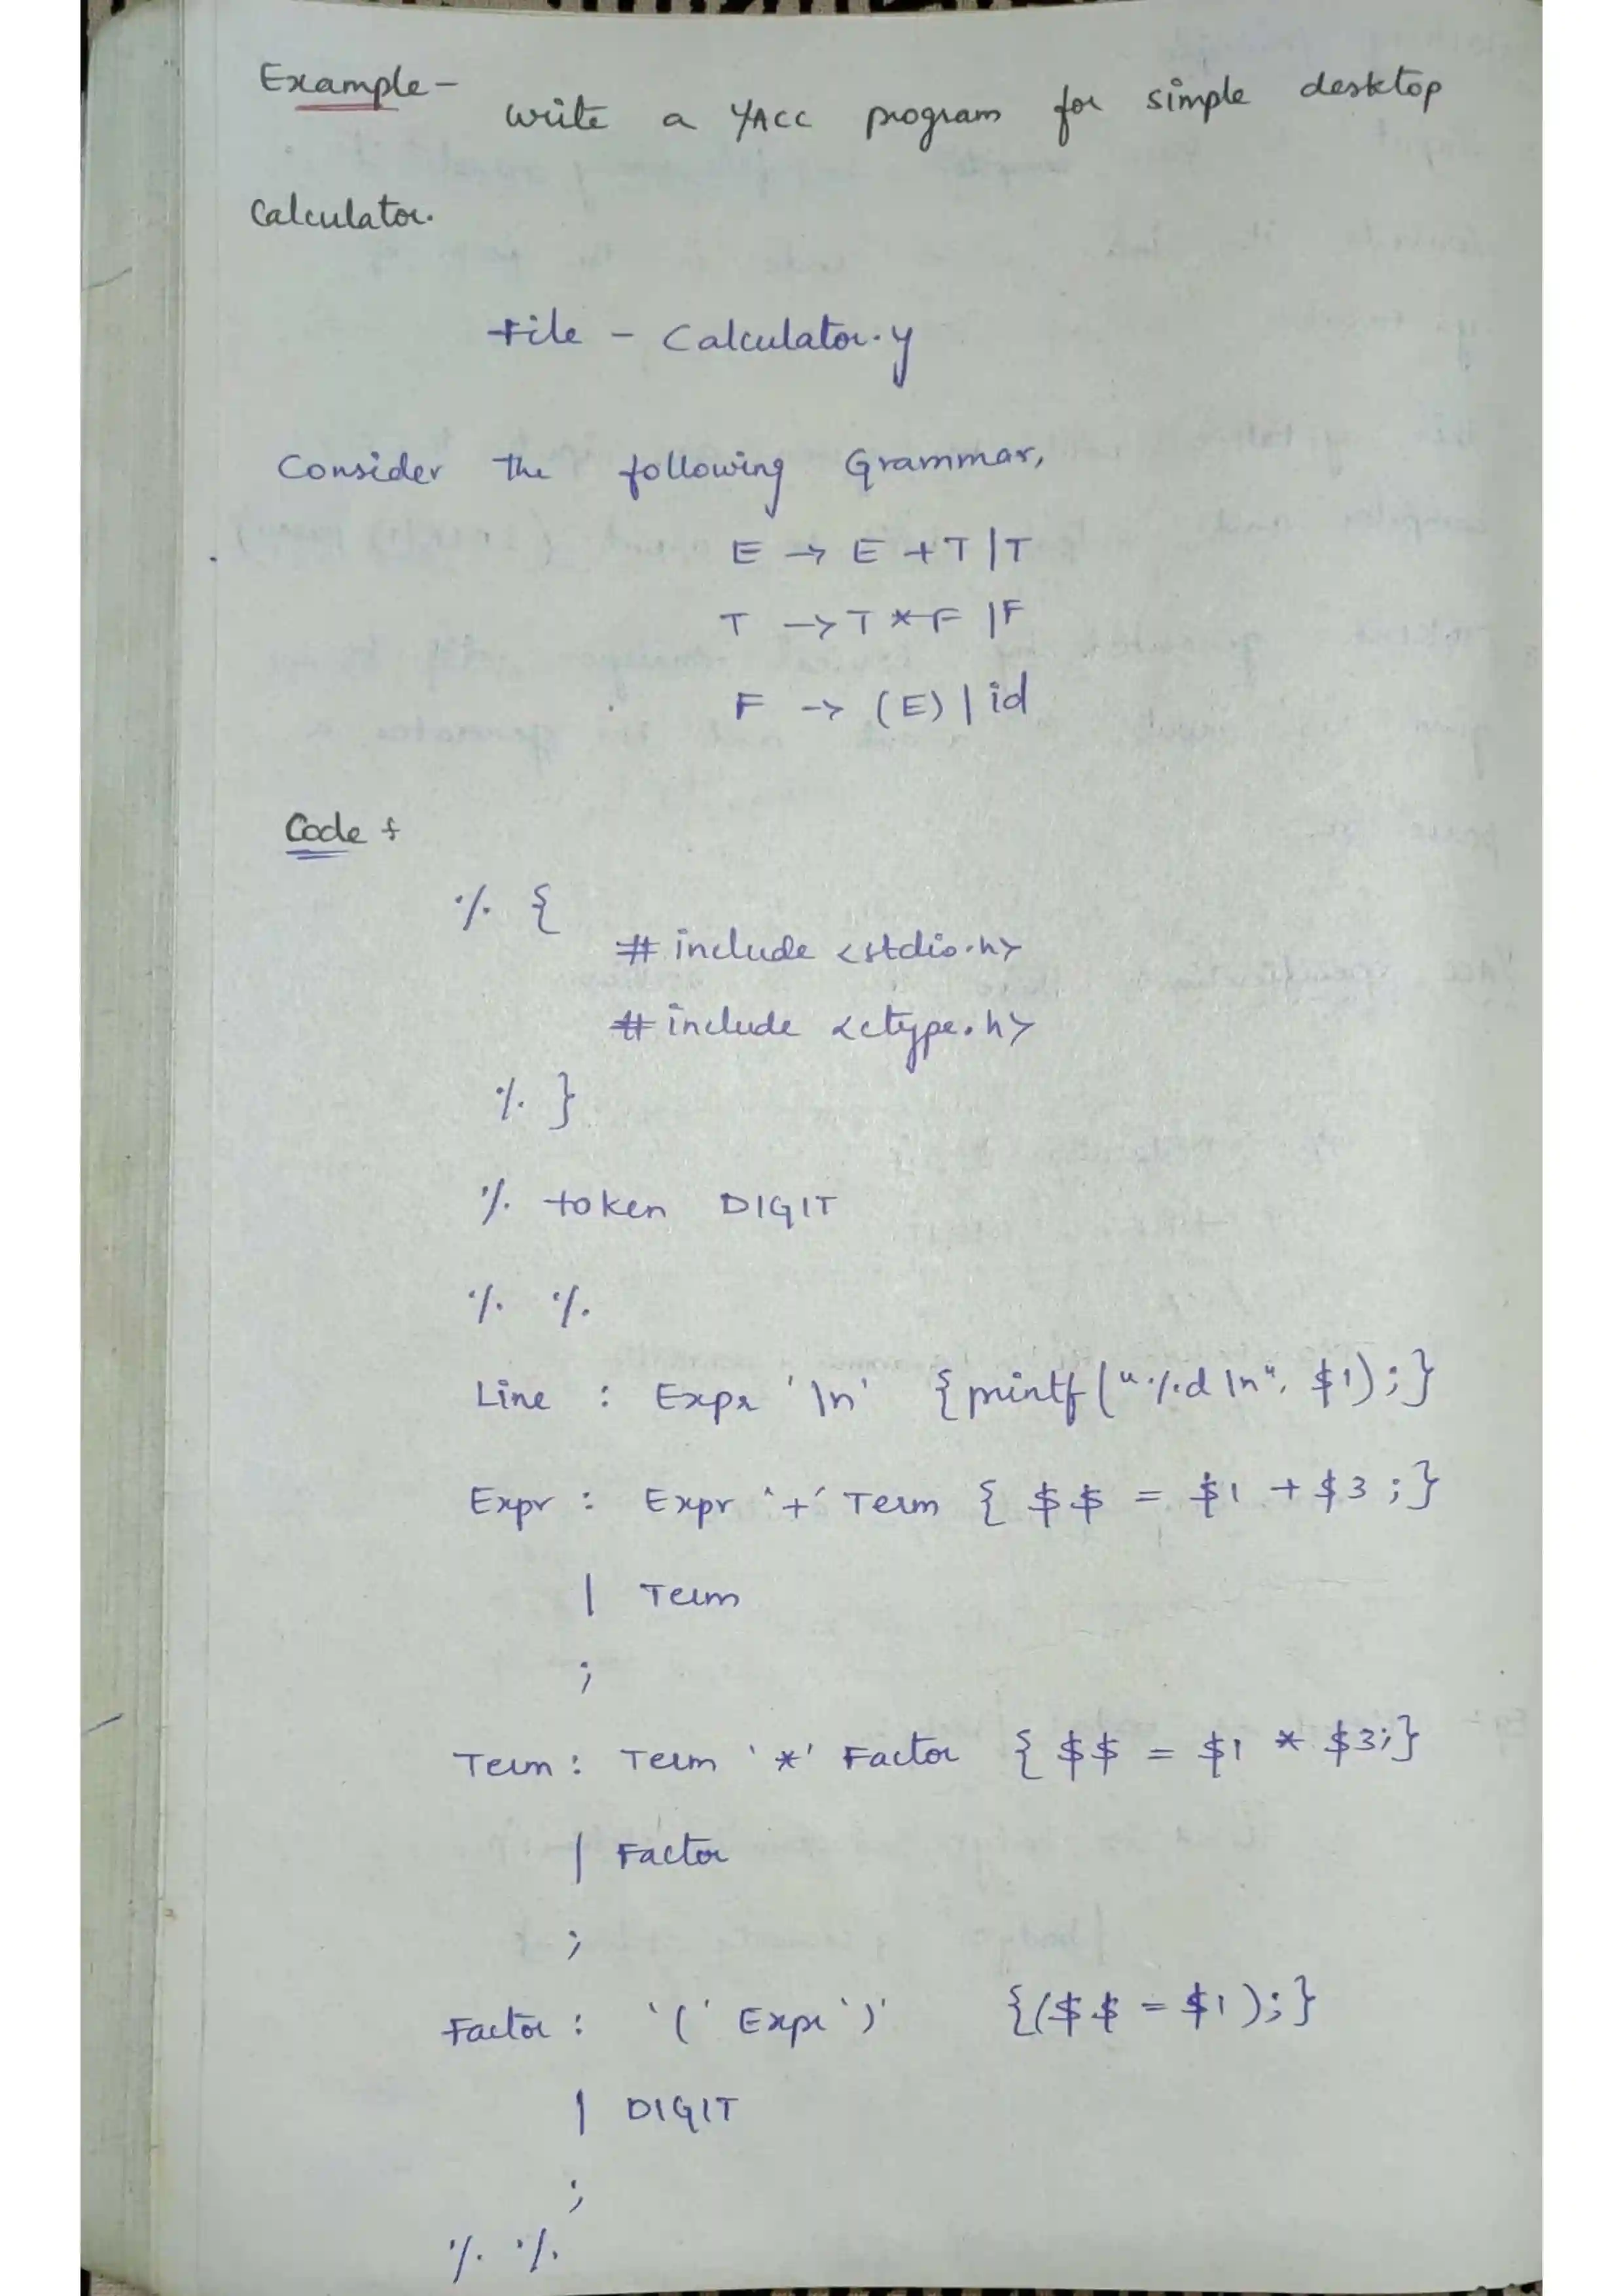 Example -
write a YACC program for simple desktop
Calculator.
File - Calculator.y
Consider the following Grammar,
E → E + T | T
T → T * F | F
F → (E) | id
Code :
% {
# include <stdio.h>
# include <ctype.h>
% }
% token DIGIT
% %
Line : Expr '\n' { printf ("%d \n", $1); }
Expr : Expr '+' Term { $$ = $1 + $3 ; }
| Term
;
Term : Term '*' Factor { $$ = $1 * $3; }
| Factor
;
Factor : '(' Expr ')' {($$ = $1 ); }
| DIGIT
;
% %